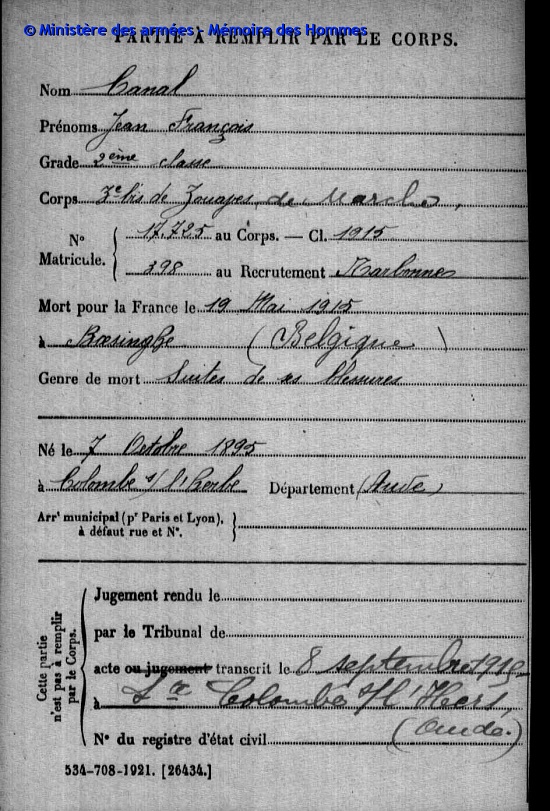 © Ministère des armées - Mémoire des Hommes
PARTIE À REMPLIR PAR LE CORPS.
Nom Canal
Prénoms Jean François
Grade 2ème classe
Corps 3e bis de Zouaves de Marche,
N° Matricule. 17.725 au Corps. — Cl. 1915
398 au Recrutement Narbonne
Mort pour la France le 19 Mai 1915
à Bœsinghe (Belgique)
Genre de mort Suites de ses blessures
Né le 7 Octobre 1895
à Colombe s/ l'herbe Département (Aude)
Arrt municipal (pr Paris et Lyon),
à défaut rue et N°.
Cette partie n'est pas à remplir par le Corps.
Jugement rendu le
par le Tribunal de
acte ou jugement transcrit le 8 septembre
à Ste Colombe s/ l'Hers,
(Aude.)
N° du registre d'état civil
534-708-1921. [26434.]